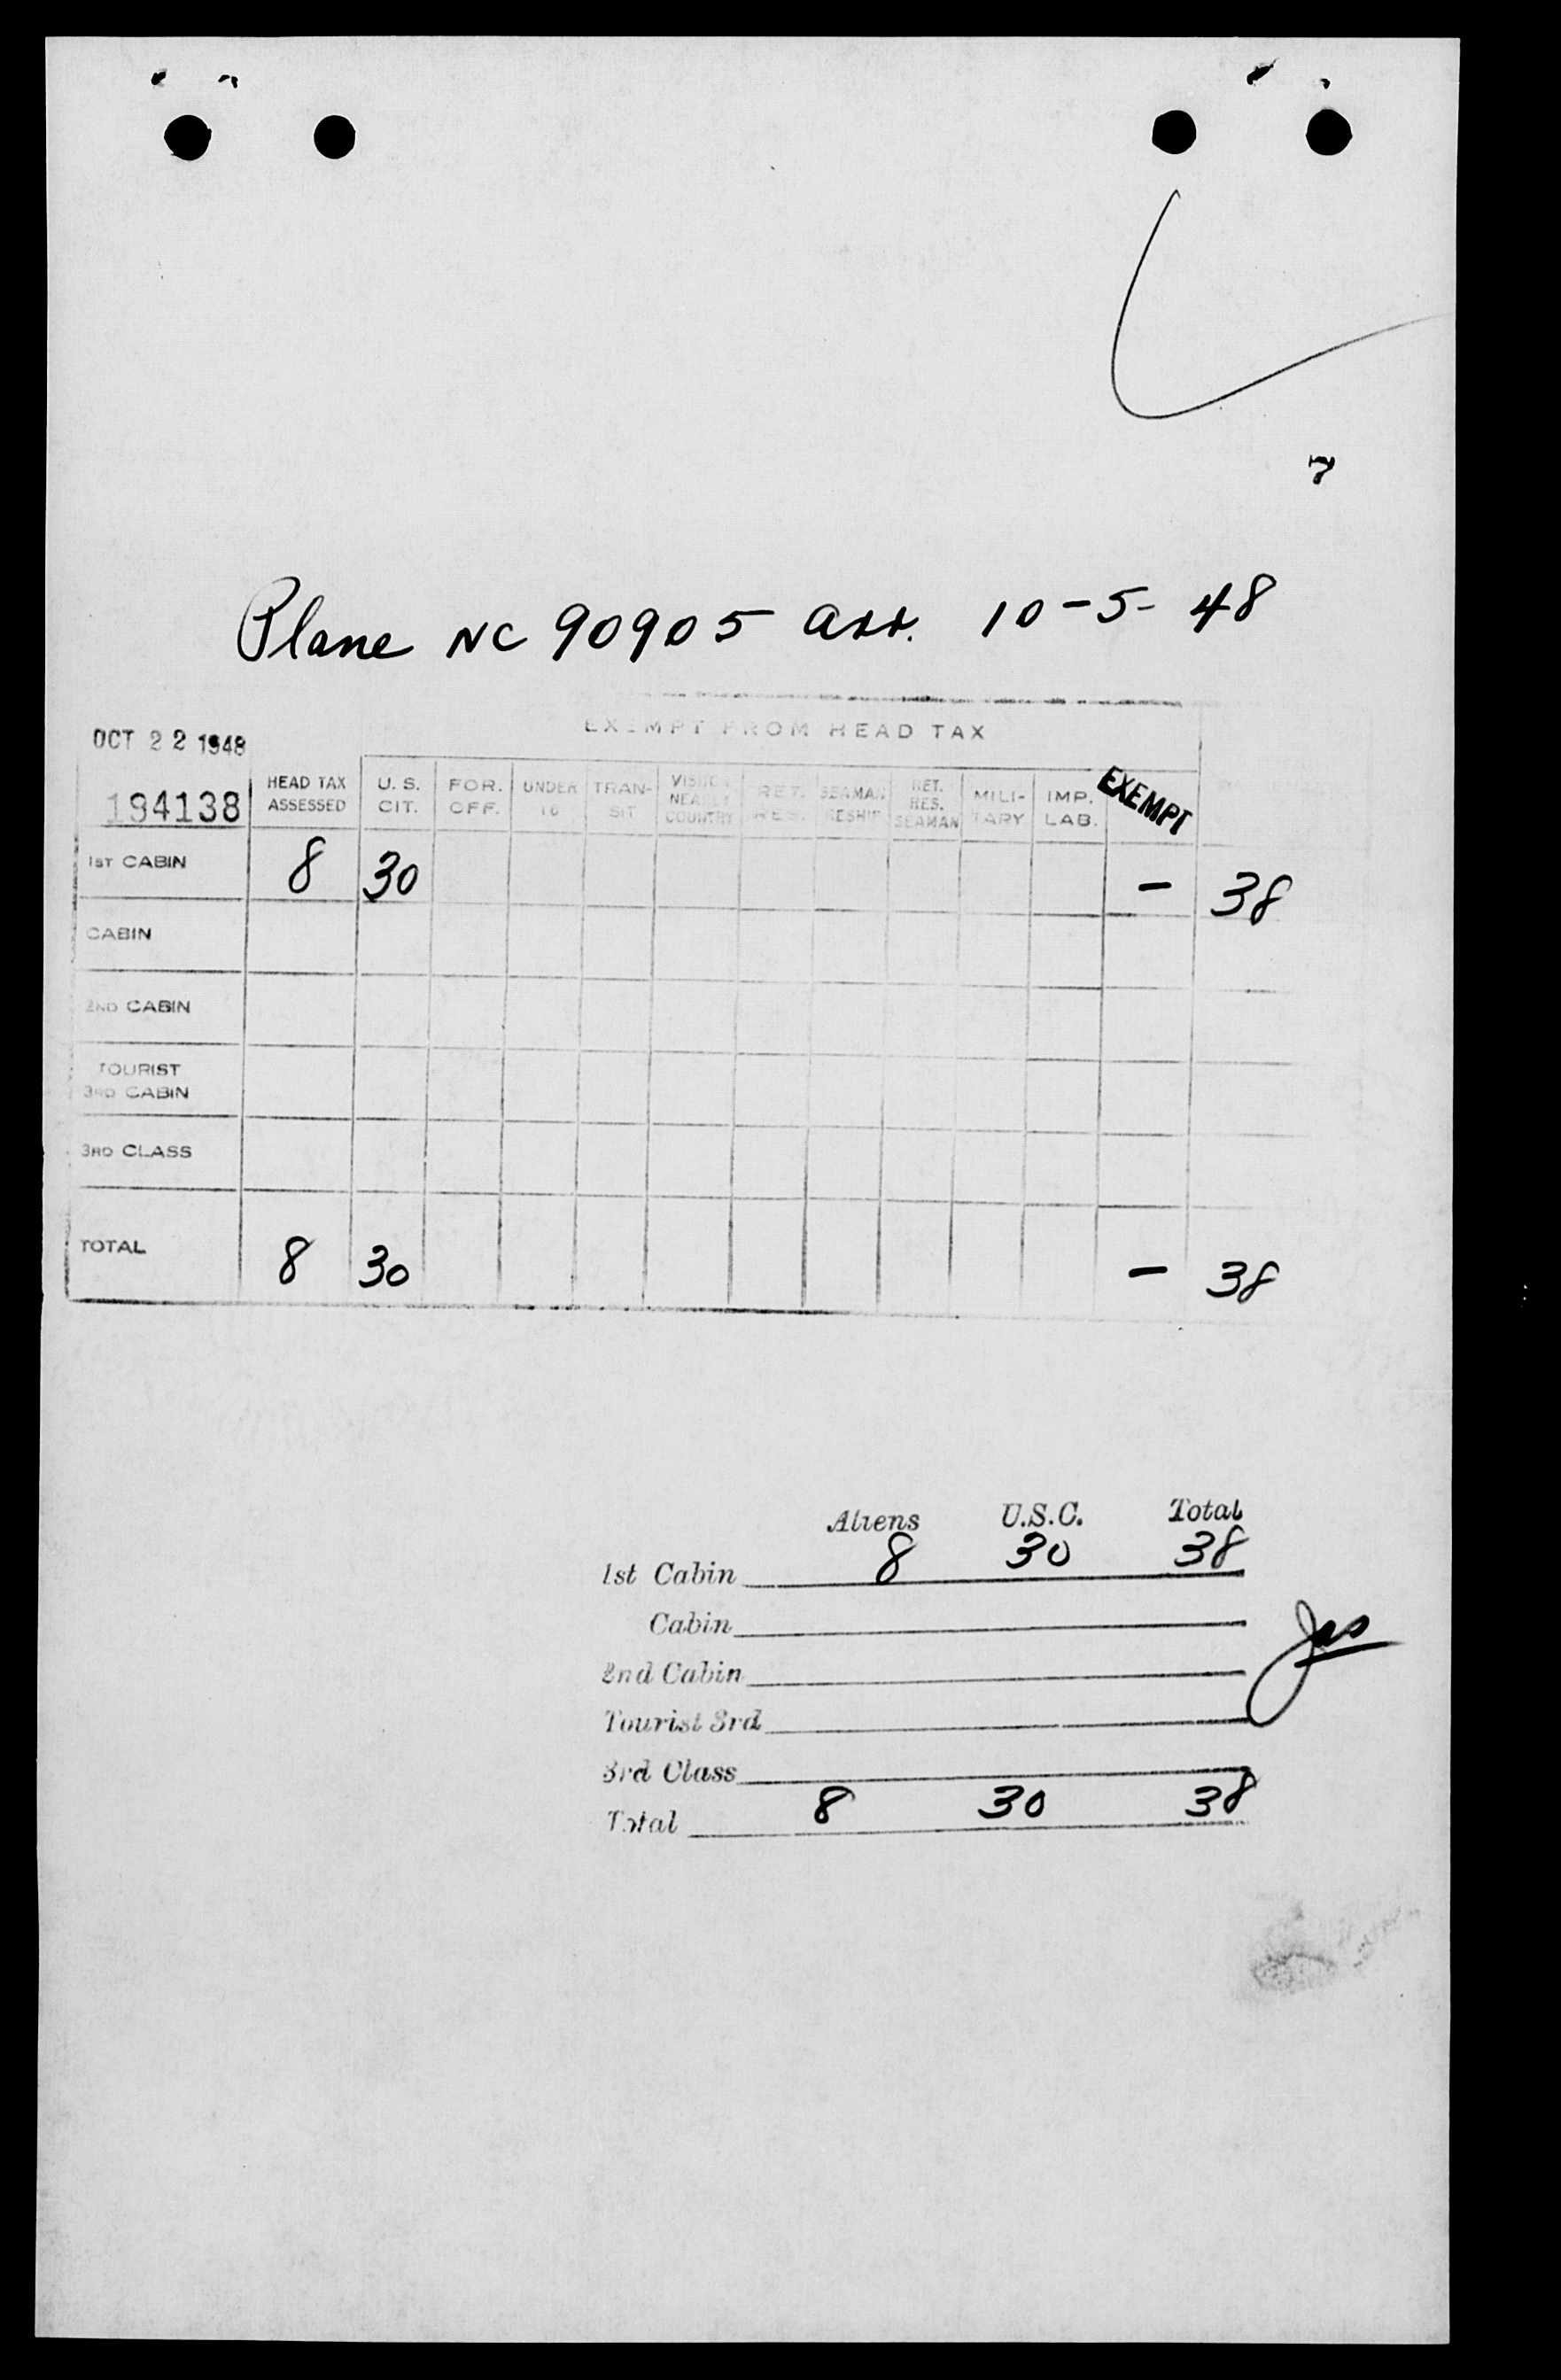 7
Plane NC 90905 arr. 10-5-48
EXEMPT FROM HEAD TAX
OCT 22 1948
194138
HEAD TAX ASSESSED U. S. CIT. FOR. OFF. UNDER 16 TRAN-SIT VISITOR NEARBY COUNTRY RET. RES. SEAMAN RESHIP RET. RES. SEAMAN MILI-TARY IMP. LAB. EXEMPT
1ST CABIN 8 30 - 38
CABIN
2ND CABIN
TOURIST
3RD CABIN
3RD CLASS
TOTAL 8 30 - 38
Aliens U.S.C. Total
1st Cabin 8 30 38
Cabin
2nd Cabin
Tourist 3rd
3rd Class
Total 8 30 38